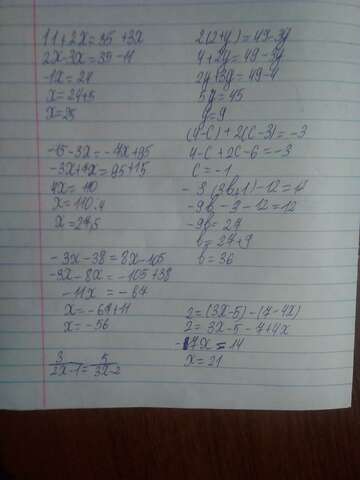 11+2x=35+3x
2x-3x=35-11
-1x=24
x=24+1
x=25
-15-3x=-7x+95
-3x+7x=95+15
4x=110
x=110:4
x=27,5
-3x-38=8x-105
-3x-8x=-105+38
-11x=-67
x=-67+11
x=-56
3/2x-1=5/3x-2
2(2+y)=49-3y
4+2y=49-3y
2y+3y=49-4
5y=45
y=9
(4-c)+2(c-3)=-3
4-c+2c-6=-3
c=-1
-3(3b+1)-12=12
-9b-3-12=12
-9b=27
b=27+9
b=36
2=(3x-5)-(7-4x)
2=3x-5-7+4x
-7x=14
x=21